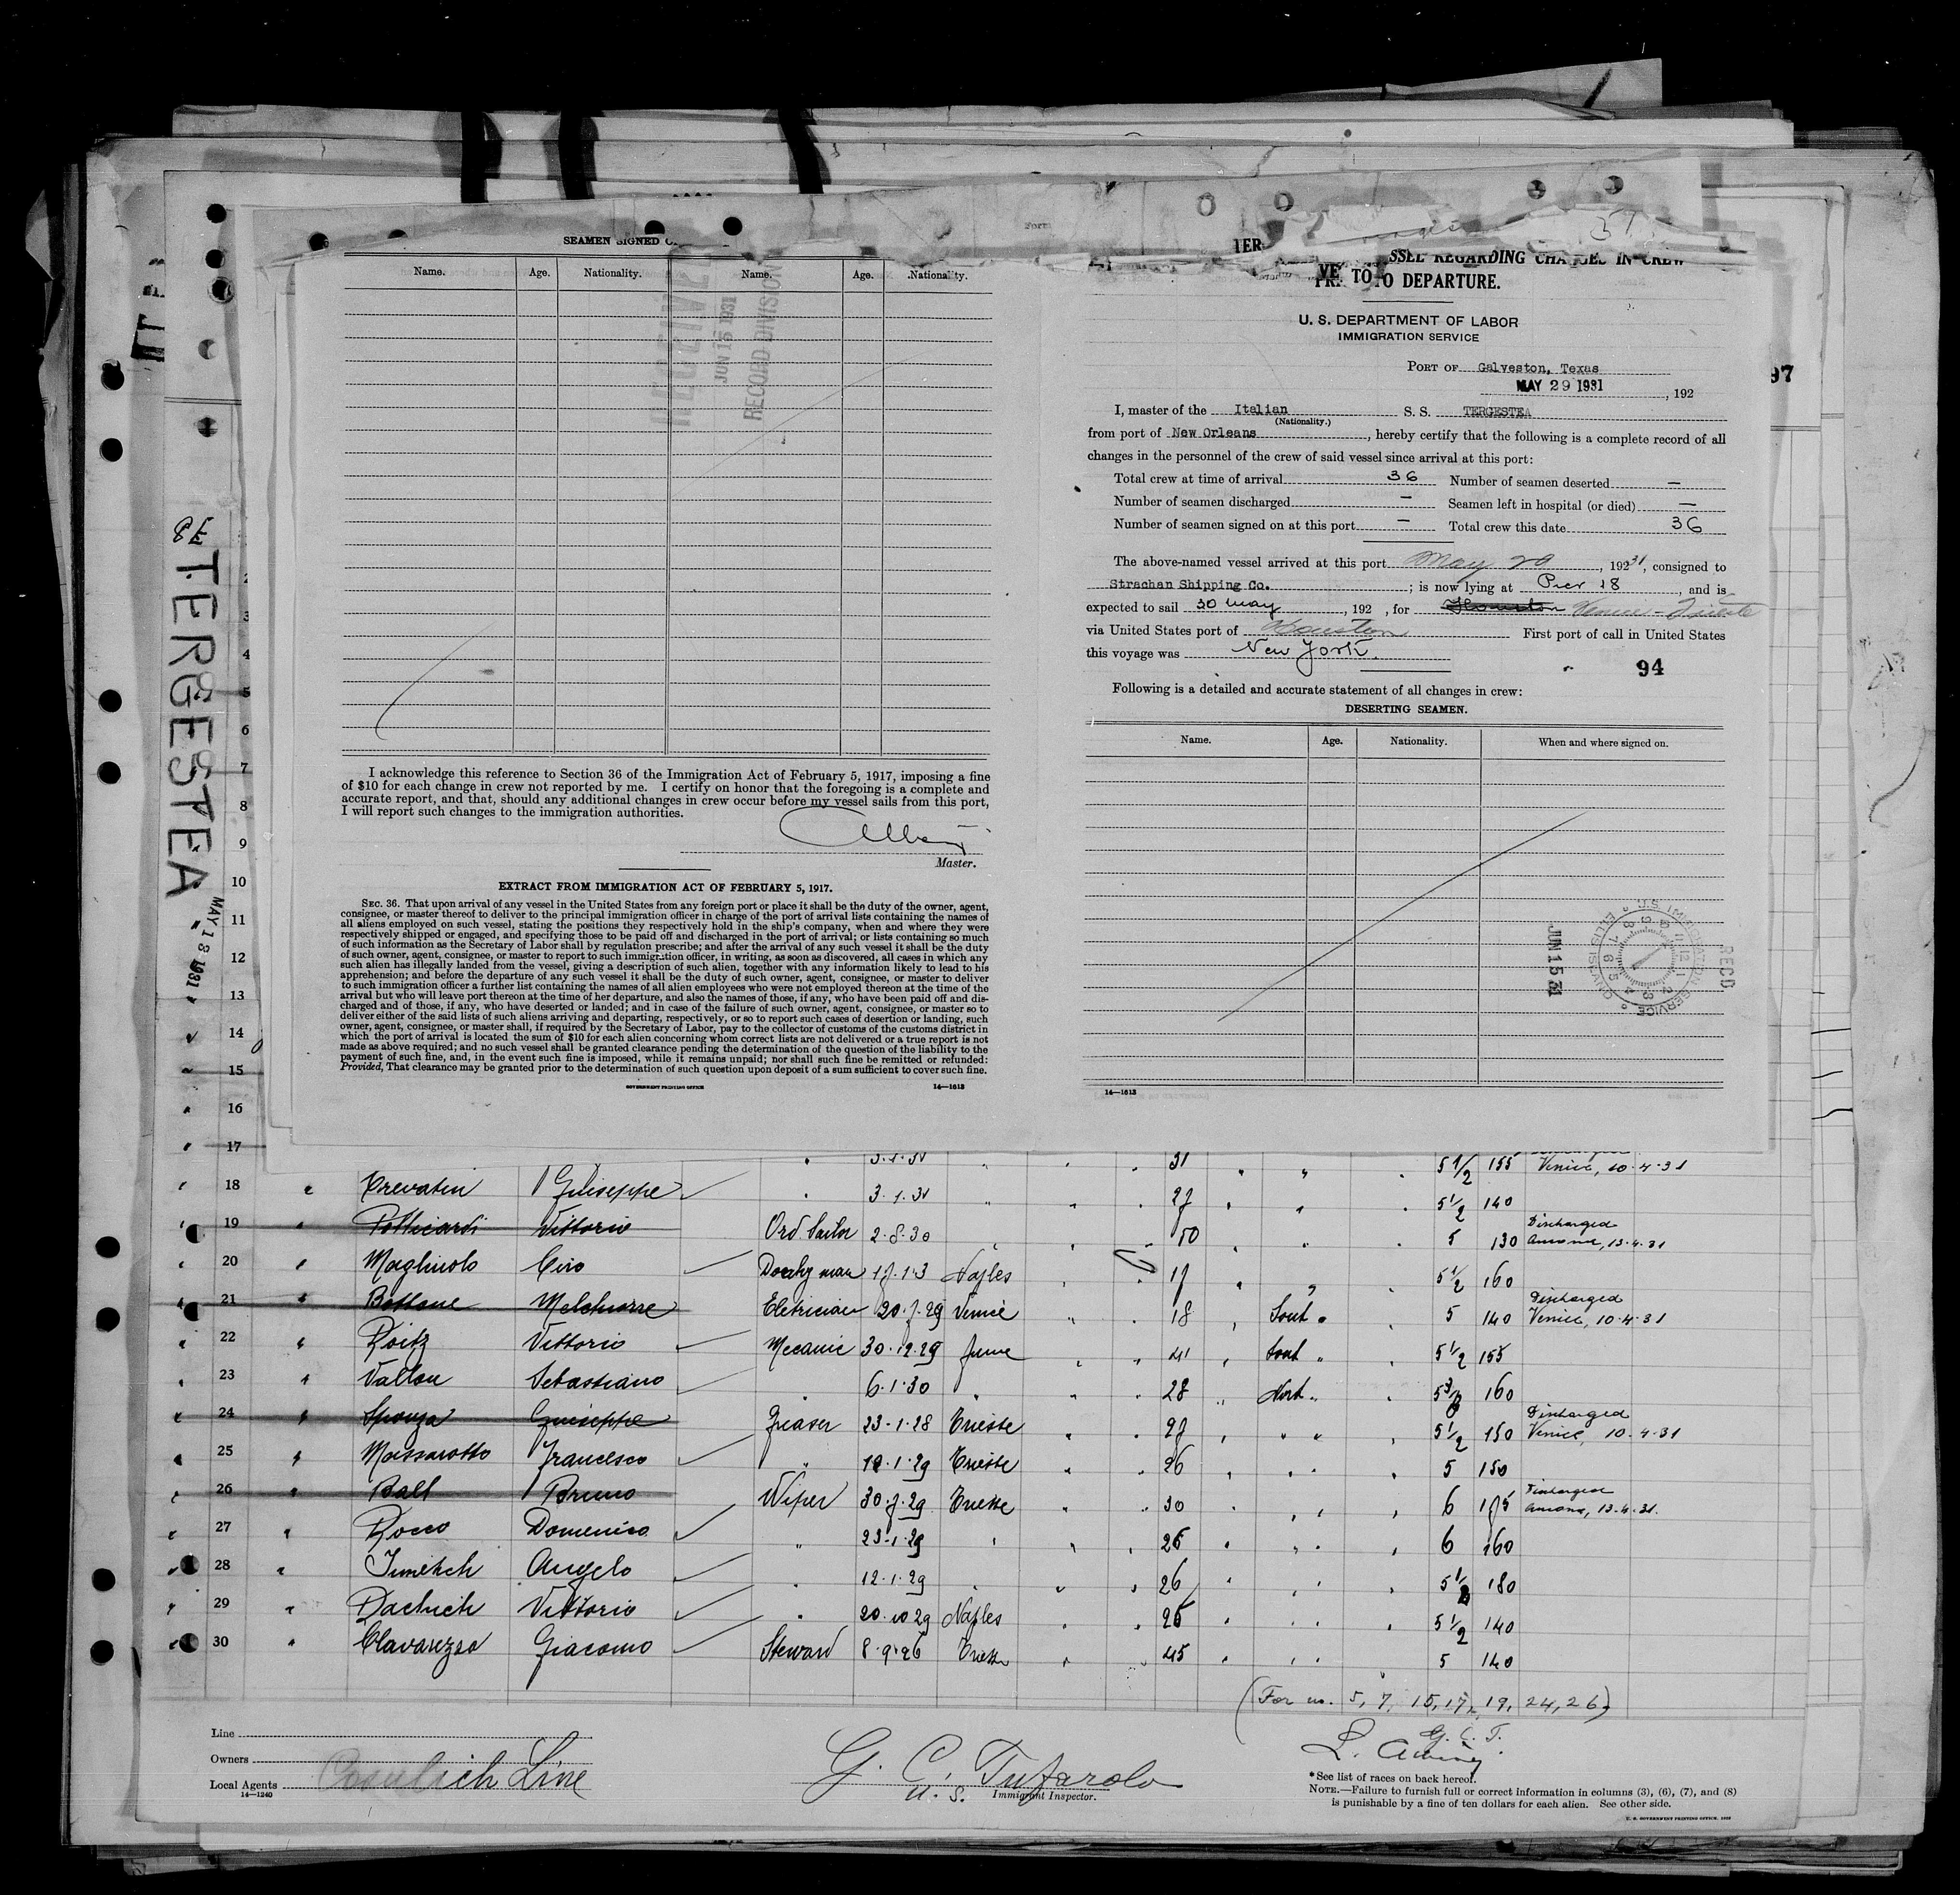 SEAMEN SIGNED
Name. Age. Nationality. Name. Age. Nationality.
JUN 15 1931
RECORD DIVISIO
I acknowledge this reference to Section 36 of the Immigration Act of February 5, 1917, imposing a fine
of $10 for each change in crew not reported by me. I certify on honor that the foregoing is a complete and
accurate report, and that, should any additional changes in crew occur before my vessel sails from this port,
I will report such changes to the immigration authorities.
Master.
EXTRACT FROM IMMIGRATION ACT OF FEBRUARY 5, 1917.
SEC. 36. That upon arrival of any vessel in the United States from any foreign port or place it shall be the duty of the owner, agent,
consignee, or master thereof to deliver to the principal immigration officer in charge of the port of arrival lists containing the names of
all aliens employed on such vessel, stating the positions they respectively hold in the ship's company, when and where they were
respectively shipped or engaged, and specifying those to be paid off and discharged in the port of arrival; or lists containing so much
of such information as the Secretary of Labor shall by regulation prescribe; and after the arrival of any such vessel it shall be the duty
of such owner, agent, consignee, or master to report to such immigration officer, in writing, as soon as discovered, all cases in which any
such alien has illegally landed from the vessel, giving a description of such alien, together with any information likely to lead to his
apprehension; and before the departure of any such vessel it shall be the duty of such owner, agent, consignee, or master to deliver
to such immigration officer a further list containing the names of all alien employees who were not employed thereon at the time of the
arrival but who will leave port thereon at the time of her departure, and also the names of those, if any, who have been paid off and dis-
charged and of those, if any, who have deserted or landed; and in case of the failure of such owner, agent, consignee, or master so to
deliver either of the said lists of such aliens arriving and departing, respectively, or so to report such cases of desertion or landing, such
owner, agent, consignee, or master shall, if required by the Secretary of Labor, pay to the collector of customs of the customs district in
which the port of arrival is located the sum of $10 for each alien concerning whom correct lists are not delivered or a true report is not
made as above required; and no such vessel shall be granted clearance pending the determination of the question of the liability to the
payment of such fine, and, in the event such fine is imposed, while it remains unpaid; nor shall such fine be remitted or refunded:
Provided, That clearance may be granted prior to the determination of such question upon deposit of a sum sufficient to cover such fine.
GOVERNMENT PRINTING OFFICE 14—1613
REGARDING CHANGES IN CREW
TO DEPARTURE.
U. S. DEPARTMENT OF LABOR
IMMIGRATION SERVICE
PORT OF Galveston, Texas
MAY 29 1931, 192
I, master of the Italian S. S. TERGESTEA
(Nationality.)
from port of New Orleans, hereby certify that the following is a complete record of all
changes in the personnel of the crew of said vessel since arrival at this port:
Total crew at time of arrival 36 Number of seamen deserted —
Number of seamen discharged — Seamen left in hospital (or died) —
Number of seamen signed on at this port — Total crew this date 36
The above-named vessel arrived at this port May 29, 1931, consigned to
Strachan Shipping Co.; is now lying at Pier 18, and is
expected to sail 30 May, 192 , for Houston Venice - Trieste
via United States port of Houston First port of call in United States
this voyage was New York.
94
Following is a detailed and accurate statement of all changes in crew:
DESERTING SEAMEN.
Name. Age. Nationality. When and where signed on.
JUN 15 31
U.S. IMMIGRATION SERVICE
RECD
14—1613
97
TERGESTEA
MAY 13 1931
3
4
5
6
7
8
9
10
11
12
13
14
15
16
17 31 5 1/2 155 Venice, 10-4-31
18 Crevatin Giuseppe 3.1.31 27 5 1/2 140
19 Pollicardi Vittorio Ord Sailor 2.8.30 50 5 130 Discharged Ancona, 13-4-31
20 Magliuolo Ciro Donkey man Naples 5 1/2 160
21 Bottone Melchiorre Eletrician 30.7.29 Venice 18 South 5 140 Discharged Venice, 10-4-31
22 Roitz Vittorio Mecanic 30.12.29 Fiume 41 South 5 1/2 155
23 Vallon Sebastiano 6.1.30 28 North 160
24 Sponza Giuseppe Greaser 23.1.28 Trieste 27 5 1/2 150 Discharged Venice, 10-4-31
25 Massarotto Francesco 12.1.29 Trieste 26 5 150
26 Ball Bruno Wiper 30.7.29 Trieste 30 6 175 Discharged Ancona, 13-4-31.
27 Rocco Domenico 23.1.29 26 6 160
28 Angelo 12.1.29 26 5 1/2 180
29 Vittorio 20.10.29 Naples 26 5 1/2 140
30 Clavarezza Giacomo Steward 8.9.26 Trieste 45 5 140
(For no. 5, 7, 15, 17, 19, 24, 26)
G. C. T.
Line
Owners
Local Agents Cosulich Line
14—1240
G. C. Tufarolo
U. S. Immigrant Inspector.
*See list of races on back hereof.
NOTE.—Failure to furnish full or correct information in columns (3), (6), (7), and (8)
is punishable by a fine of ten dollars for each alien. See other side.